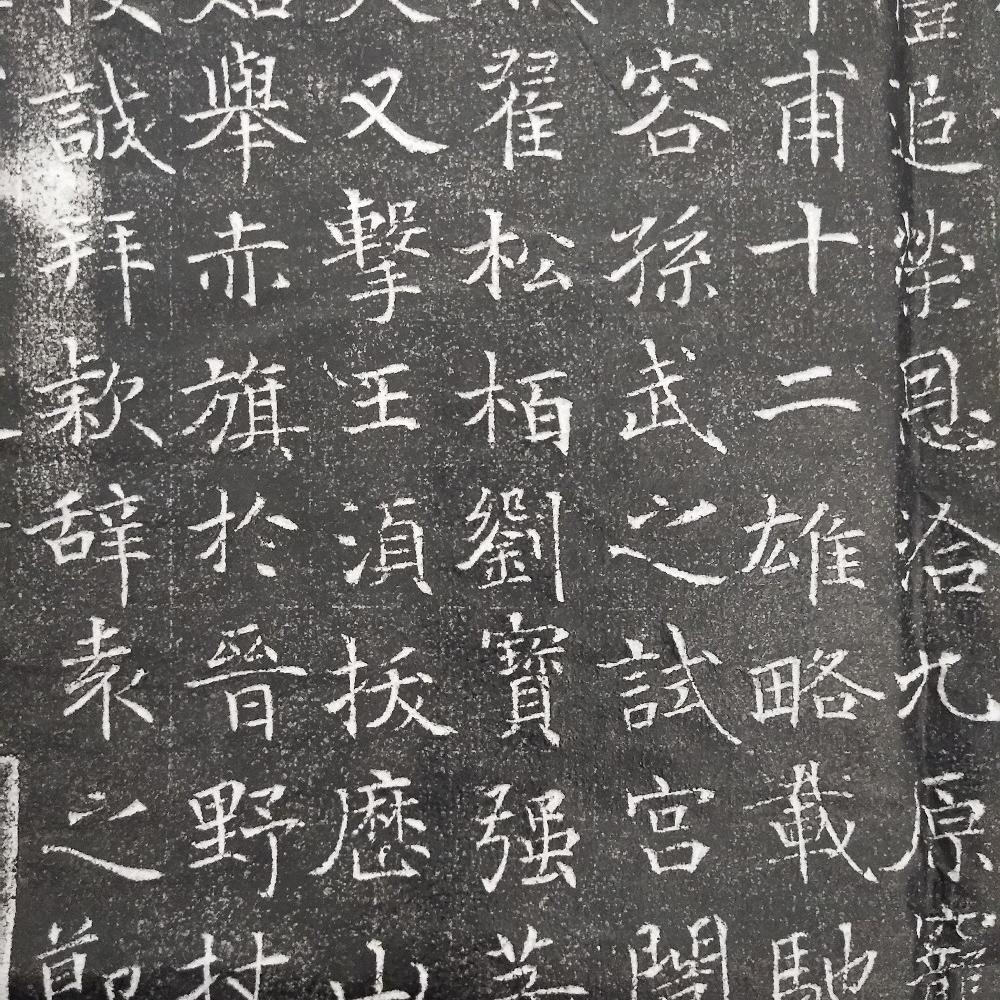 追榮恩洽九原寵
甫十二雄略載馳
容孫武之試宮闈
翟松柏劉寶强
又擊王湏拔歷山
舉赤旗於晉野
誠拜款辭袁之節